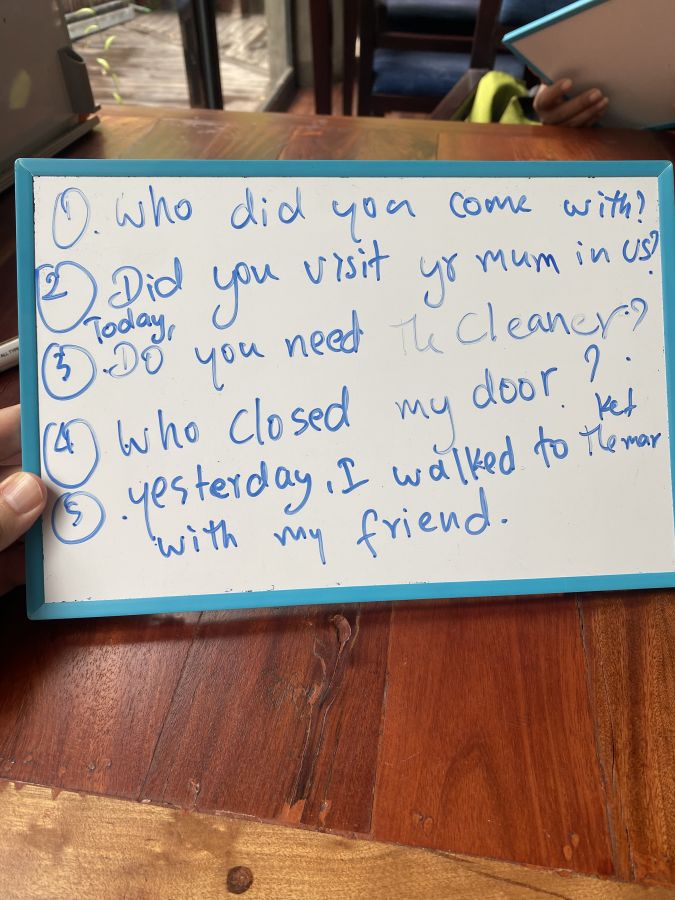 1. Who did you come with?
2 Did you visit yr mum in US?
Today,
3. Do you need the cleaner?
4 Who closed my door?
5. yesterday, I walked to the market
with my friend.